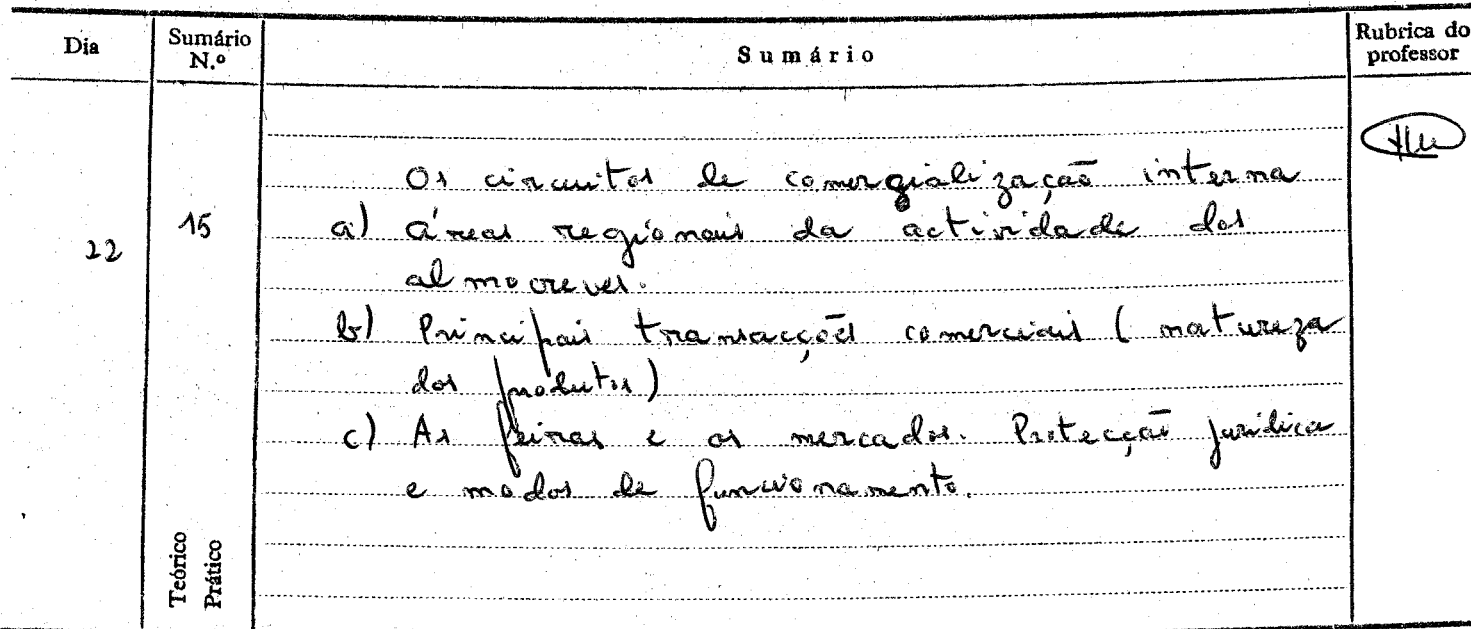 Dia Sumário N.º Sumário Rubrica do professor
22 15
Os circuitos de comercialização interna
a) áreas regionais da actividade dos
almocreves.
b) Principais transacções comerciais (natureza
dos produtos)
c) As feiras e os mercados. Protecção jurídica
e modos de funcionamento.
Teórico
Prático